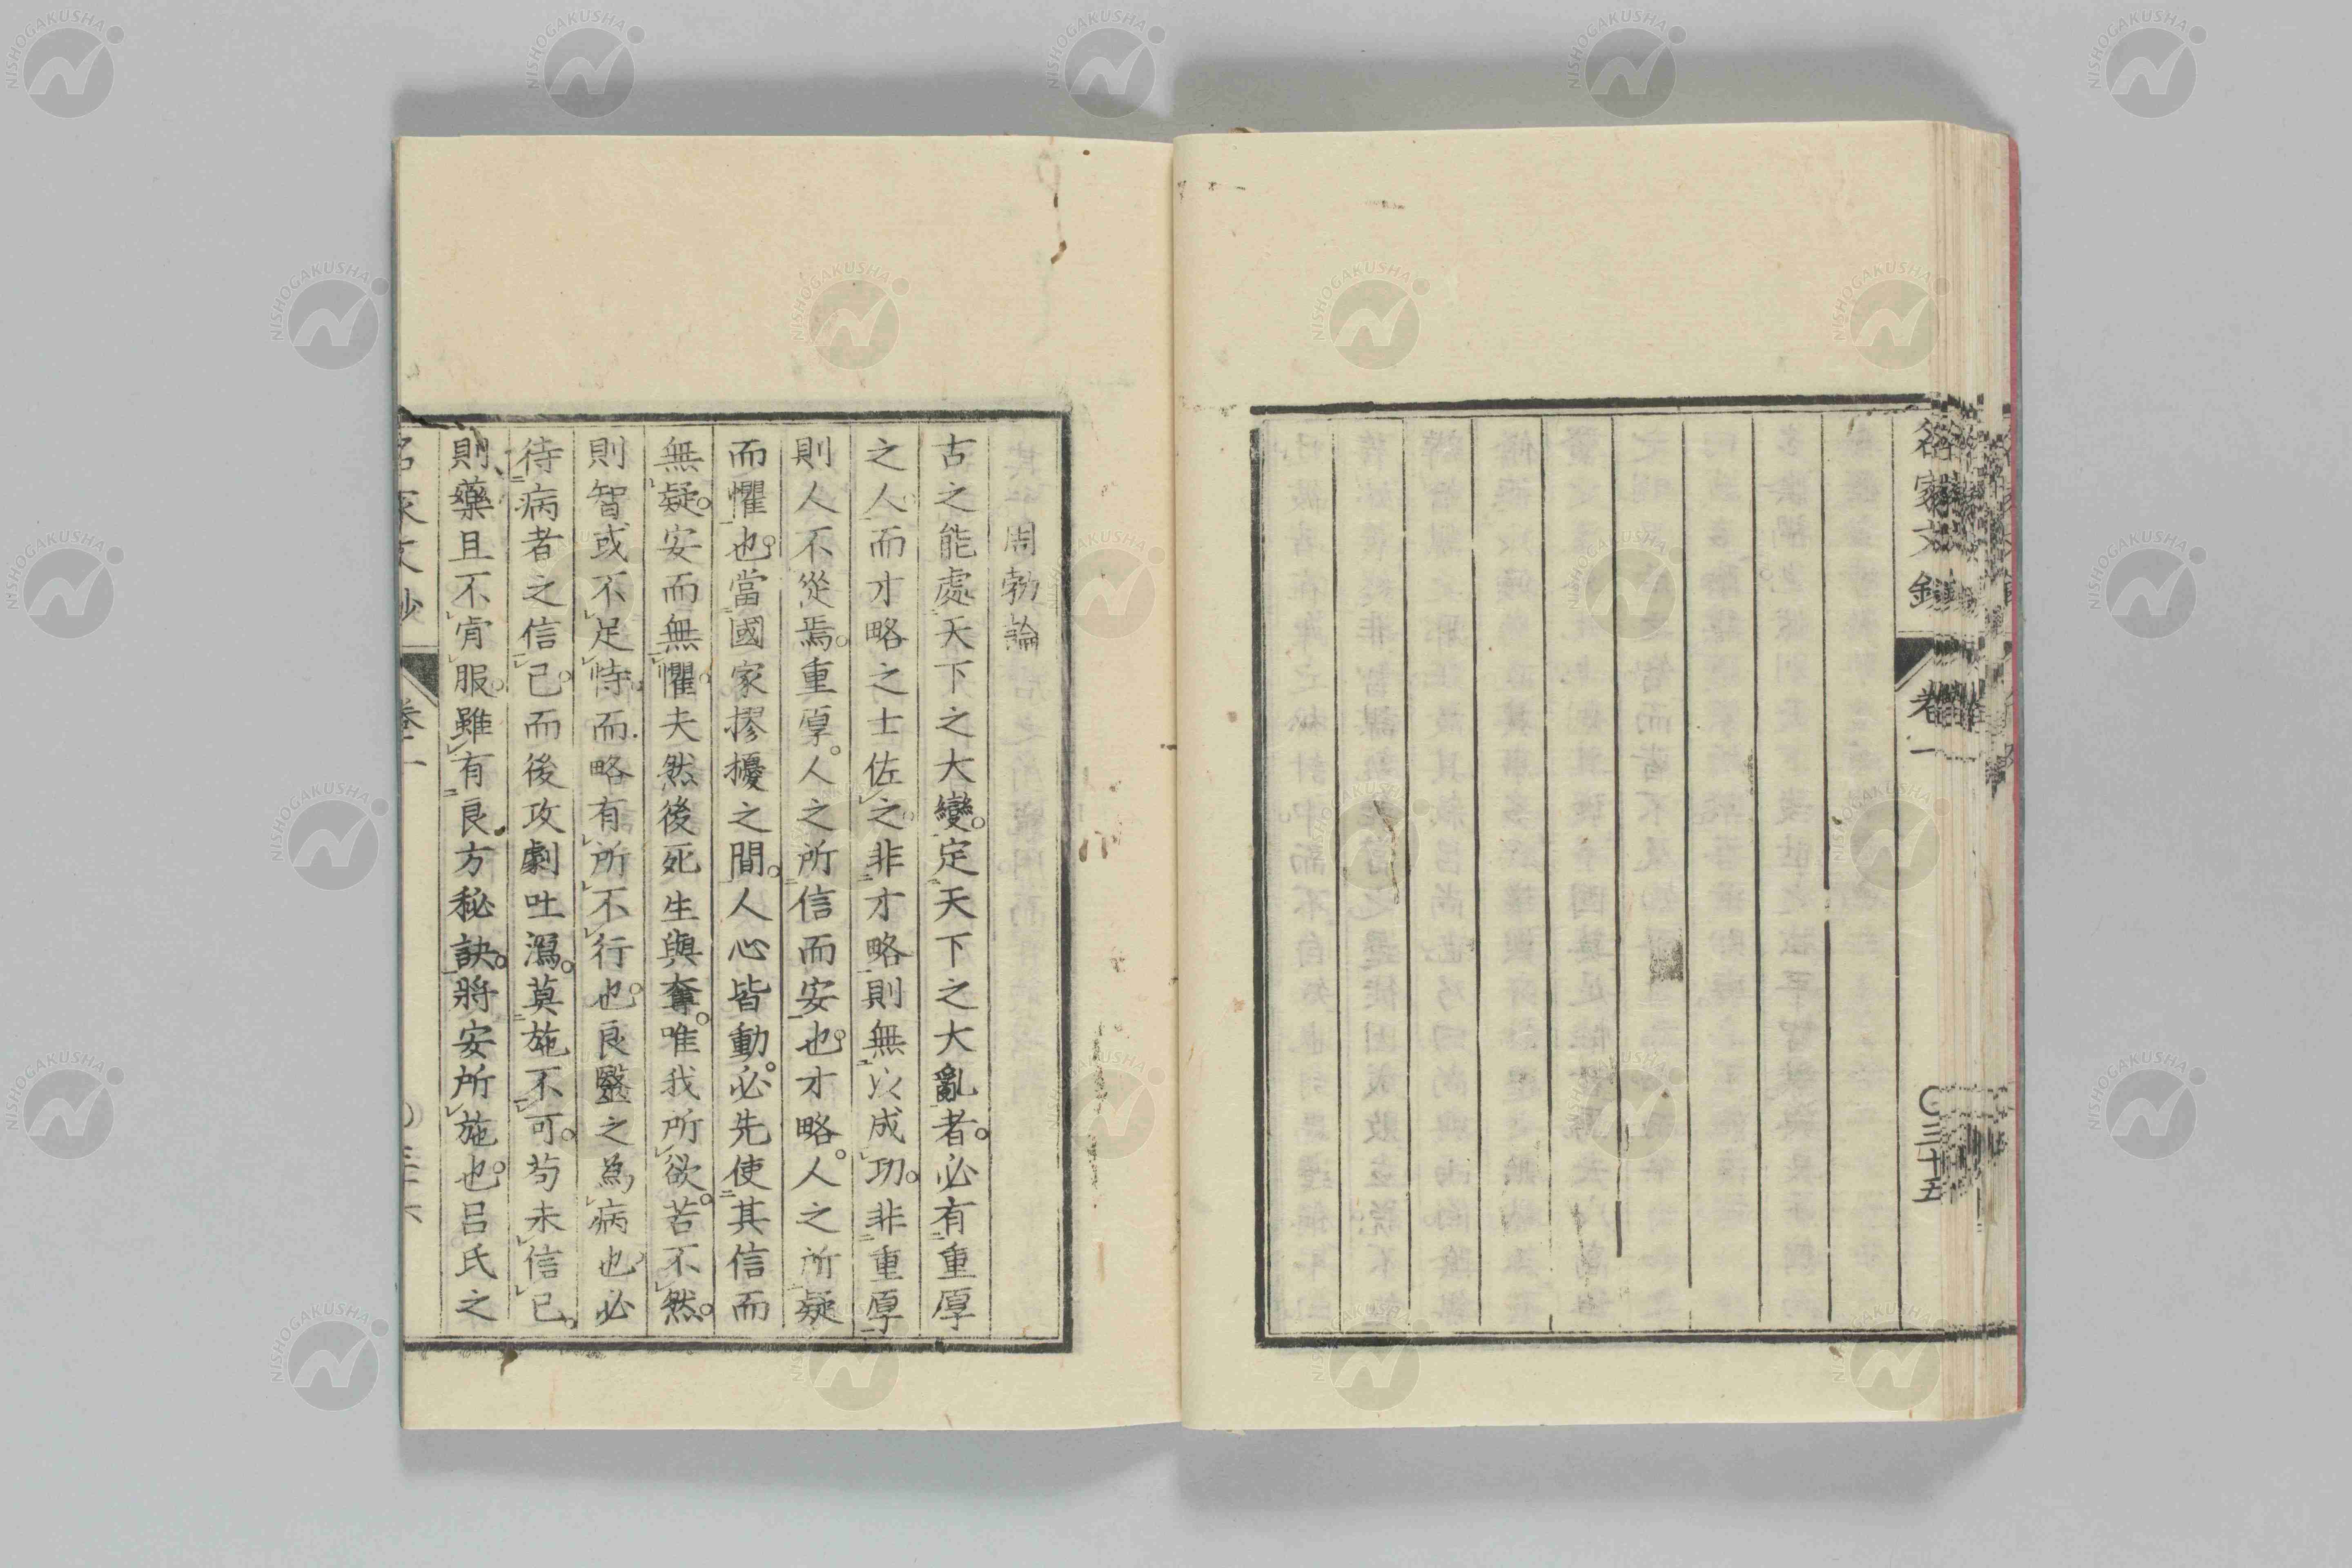 名家文鈔
卷一
〇三十五
周勃論
古之能處天下之大變。定天下之大亂者。必有重厚
之人。而才略之士佐之。非才略則無以成功。非重厚
則人不從焉。重厚。人之所信而安也。才略。人之所疑
而懼也。當國家摎擾之間。人心皆動。必先使其信而
無疑。安而無懼。夫然後死生與奪。唯我所欲。苦不然。
則智或不足恃。而略有所不行也。良醫之爲病也。必
待病者之信己。而後攻劇吐瀉。莫施不可。苟未信己。
則藥且不肯服。雖有良方秘訣。將安所施也。呂氏之
名家文鈔
卷一
NISHOGAKUSHA